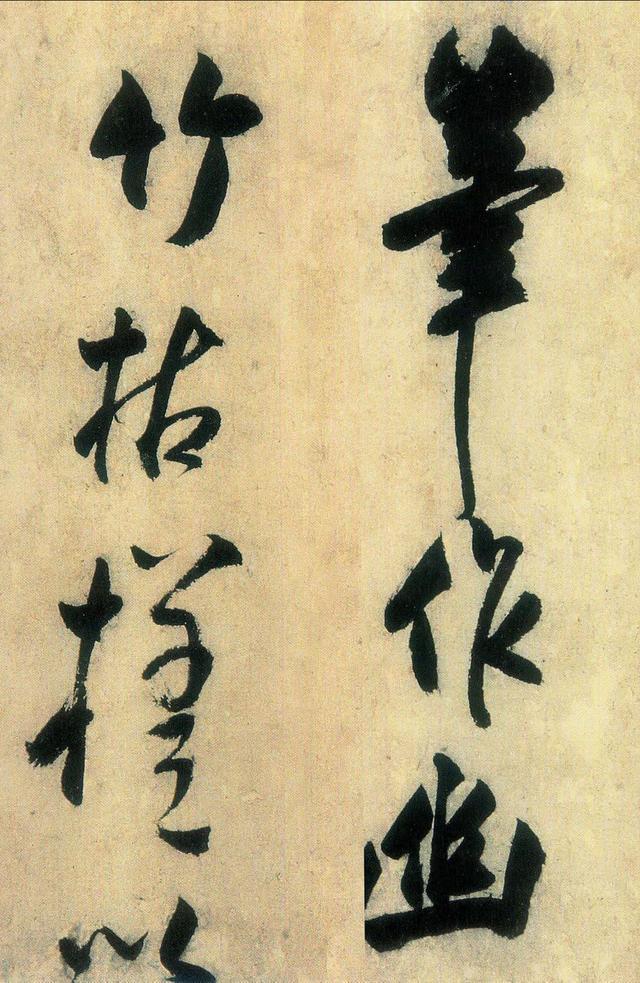 筆作幽
竹枯槎以